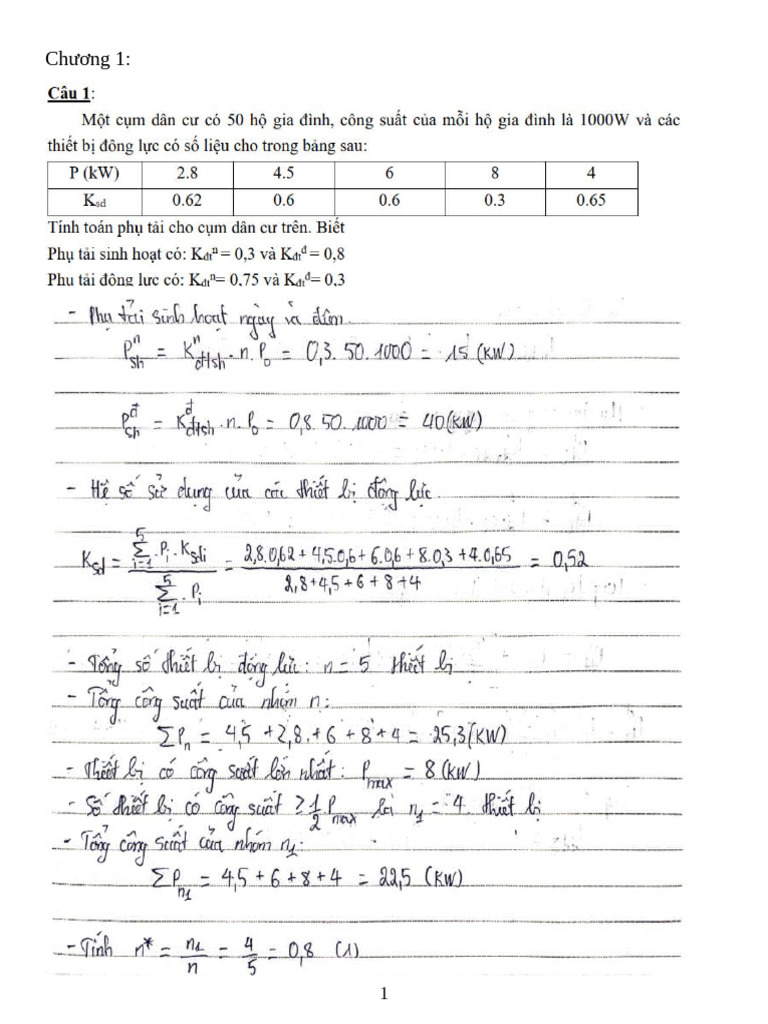 Chương 1:
Câu 1:
Một cụm dân cư có 50 hộ gia đình, công suất của mỗi hộ gia đình là 1000W và các
thiết bị đông lực có số liệu cho trong bảng sau:
P (kW) 2.8 4.5 6 8 4
Ksd 0.62 0.6 0.6 0.3 0.65
Tính toán phụ tải cho cụm dân cư trên. Biết
Phụ tải sinh hoạt có: Kđtⁿ = 0,3 và Kđtᵈ = 0,8
Phụ tải động lực có: Kđtⁿ= 0,75 và Kđtᵈ= 0,3
- Phụ tải sinh hoạt ngày và đêm.
Pⁿsh = Kⁿđtsh . n. P₀ = 0,3. 50. 1000 = 15 (KW)
Pᵈsh = Kᵈđtsh . n. P₀ = 0,8. 50. 1000 = 40 (KW)
- Hệ số sử dụng của các thiết bị động lực.
Ksd = Σ⁵ᵢ₌₁ Pᵢ . Ksdi / Σ⁵ᵢ₌₁ . Pᵢ = 2,8.0,62 + 4,5.0,6 + 6.0,6 + 8.0,3 + 4.0,65 / 2,8+4,5+6+8+4 = 0,52
- Tổng số thiết bị động lực: n = 5 thiết bị
- Tổng công suất của nhóm n:
ΣPn = 4,5 + 2,8 + 6 + 8 + 4 = 25,3 (KW)
- Thiết bị có công suất lớn nhất: Pmax = 8 (KW)
- Số thiết bị có công suất ≥ 1/2 Pmax là n₁ = 4 thiết bị
- Tổng công suất của nhóm n₁:
ΣPn₁ = 4,5 + 6 + 8 + 4 = 22,5 (KW)
- Tính n* = n₁/n = 4/5 = 0,8 (1)
1